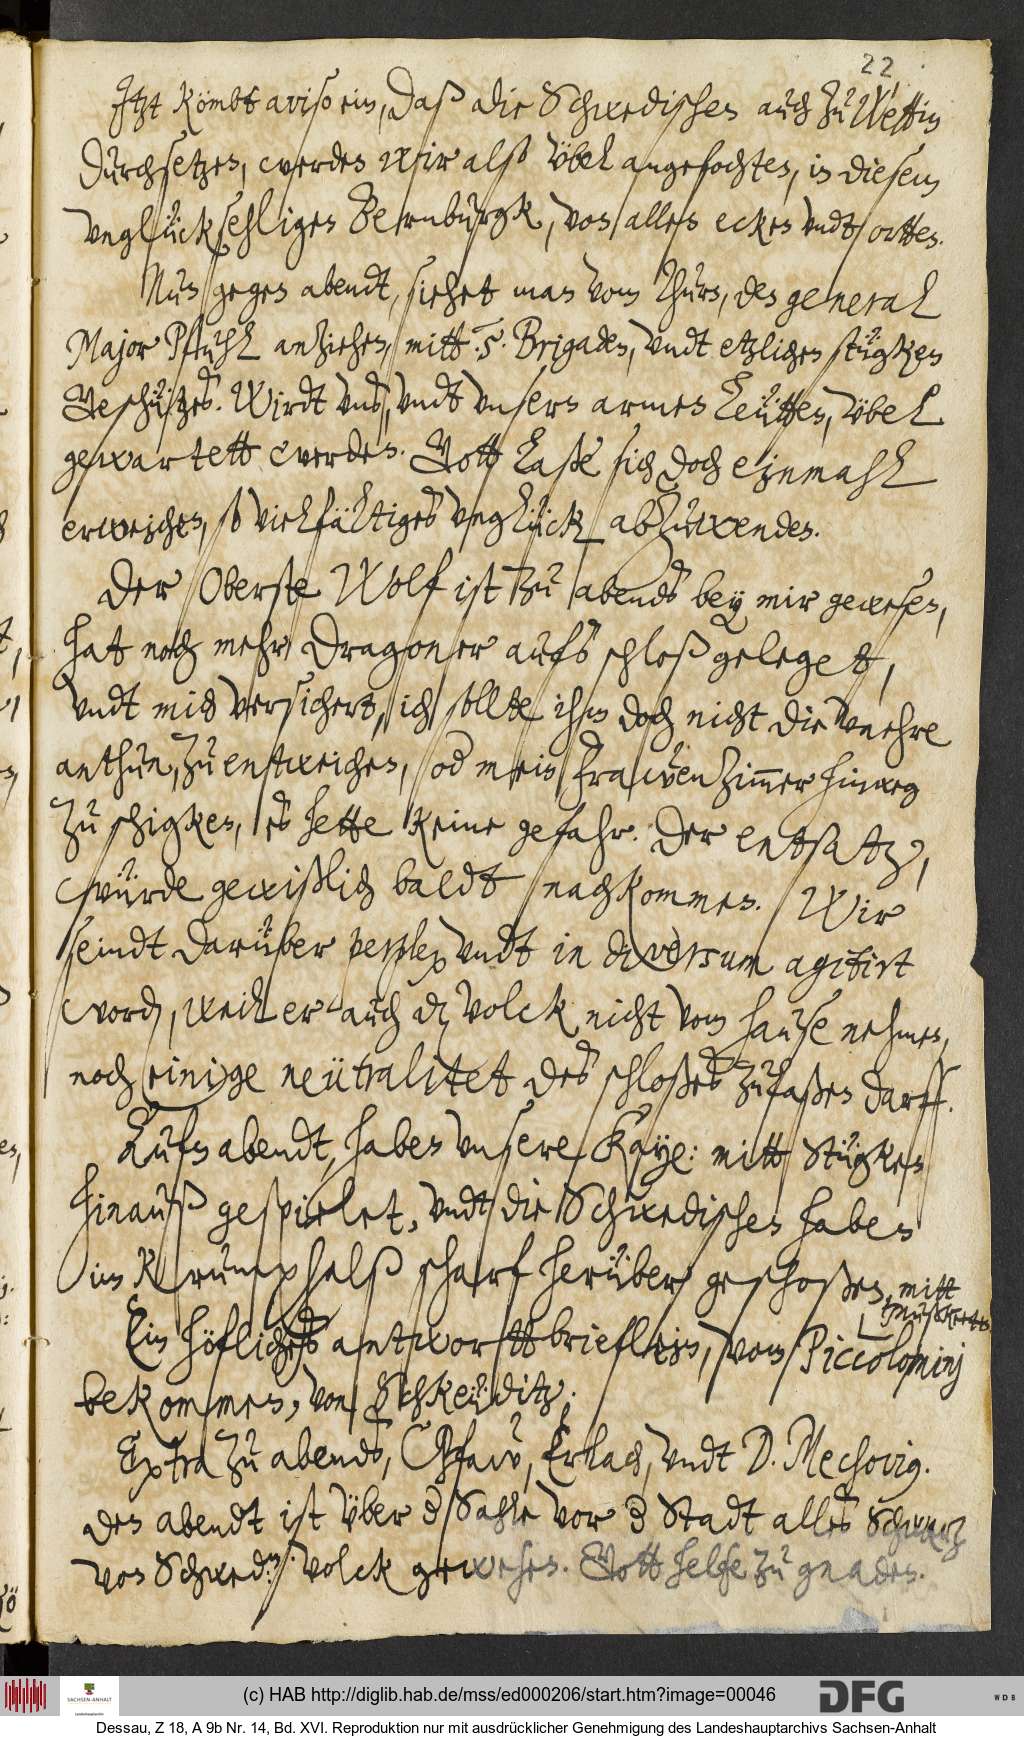 22.
Itzt kömbt aviso ein, daß die Schwedischen auch zu Wettin
durchsetzen, werden wir alß vbel angefochten, in diesem
vnglücksehligen Bernburgk, von allen ecken vndt orthen.
Nun gegen abendt, siehet man vom Thurn, den general
Major Pfuhl anziehen, mitt .5. Brigaden, vndt etzlichen stügken
Geschützes. Wirdt vns, vndt vnsern armen leütten, vbel
gewartett werden. Gott laße sich doch einmahl
erweichen, so vielfältiges vnglück abzuwenden.
Der Oberste Wolf ist zu abends bey mir gewesen,
hat noch mehr Dragoner aufs schloß geleget,
vndt mich versichert, ich sollte ihm doch nicht die vnehre
anthun, zu entweichen, od mein Frawenzimmer hinweg
zu schigken, es hette keine gefahr. Der entsatz,
würde gewißlich baldt nachkommen. Wir
seindt darüber perplex vndt in diversum agitirt
word, weil er auch d volck nicht vom hause nehmen,
noch einige neütralitet des schloßes zulaßen darff.
Aufn abendt, haben vnsere Kaye: mitt Stügken
hinauß gespielet, vndt die Schwedischen haben
im Krumphalß scharf herüber geschoßen, mitt
Mußketen
Ein höfliches antwortt brieflein, vom Piccolominj
bekommen, von Schkeüditz.
Extra zu abends, Obrist Pfaw, Erlach, vndt D. Mechovius.
den abendt ist vber d Sahle vor d Stadt alles Schwartz
von Schwed: volck gewesen. Gott helfe zu gnaden.
(c) HAB http://diglib.hab.de/mss/ed000206/start.htm?image=00046
SACHSEN-ANHALT
DFG
WDB
Dessau, Z 18, A 9b Nr. 14, Bd. XVI. Reproduktion nur mit ausdrücklicher Genehmigung des Landeshauptarchivs Sachsen-Anhalt